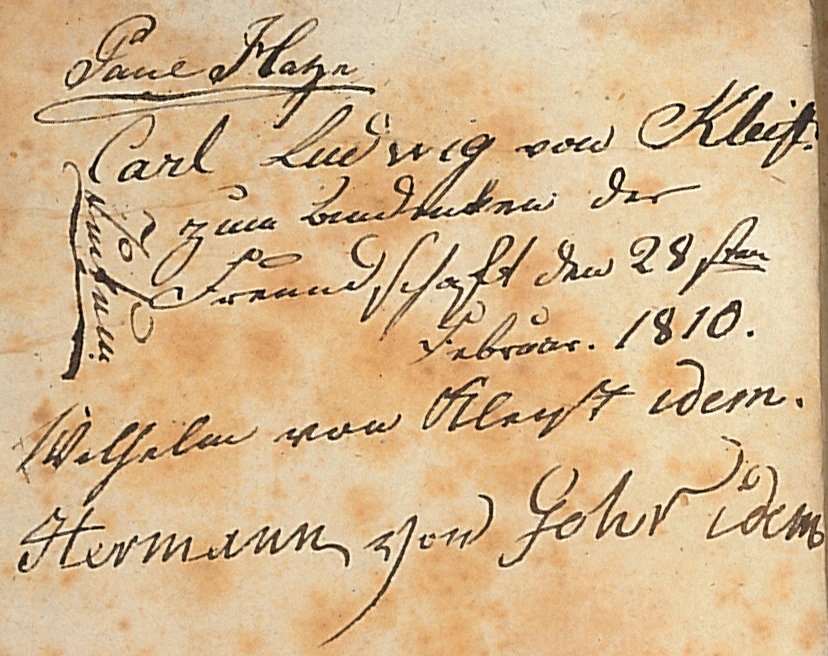 Carl Ludwig von Kleist.
zum Andenken der
Freundschaft den 28 sten
Februar. 1810.
Wilhelm von Kleyst idem.
Hermann von Gohr idem